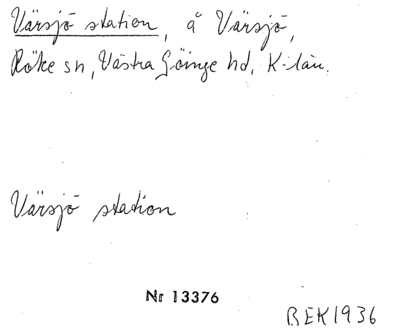 Värsjö station, å Värsjö,
Röke sn, Västra Göinge hd, K-län.
Värsjö station
Nr 13376
BEK1936